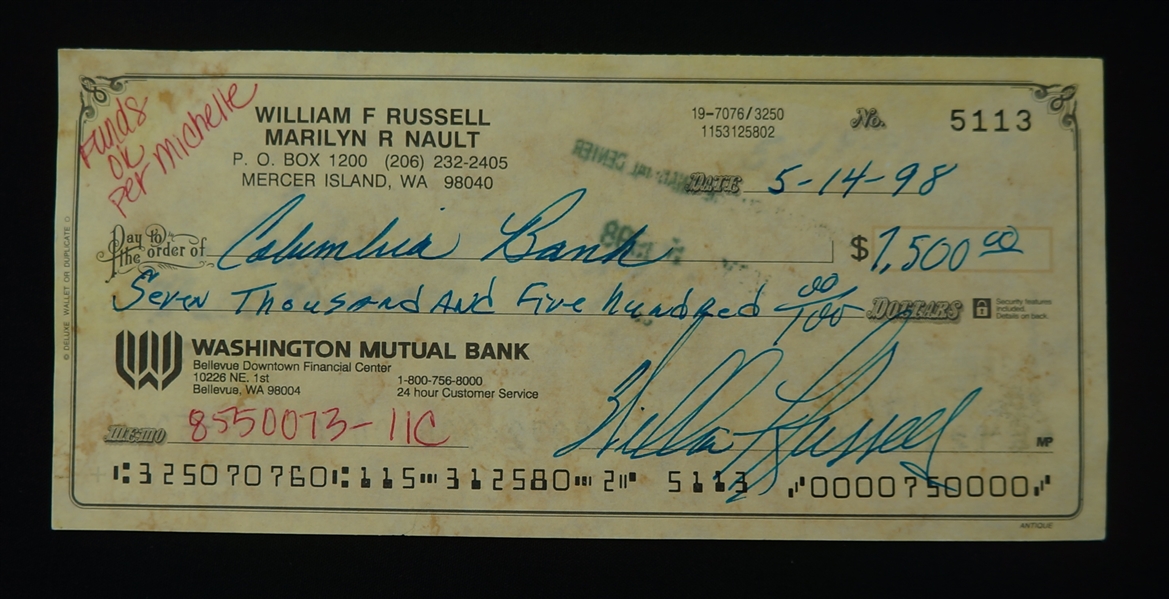 Funds
ok
per Michelle
WILLIAM F RUSSELL
MARILYN R NAULT
P. O. BOX 1200 (206) 232-2405
MERCER ISLAND, WA 98040
19-7076/3250
1153125802
No. 5113
DATE 5-14-98
Pay to the order of Columbia Bank $ 7,500 00
Seven Thousand And Five hundred 00/100 DOLLARS
Security features included. Details on back.
WASHINGTON MUTUAL BANK
Bellevue Downtown Financial Center
10226 NE. 1st 1-800-756-8000
Bellevue, WA 98004 24 hour Customer Service
MEMO 8550073-11C
William F Russell
MP
⑆325070760⑆115⑉312580⑉2⑈ 5113 ⑇0000750000⑇
ANTIQUE
© DELUXE WALLET OR DUPLICATE